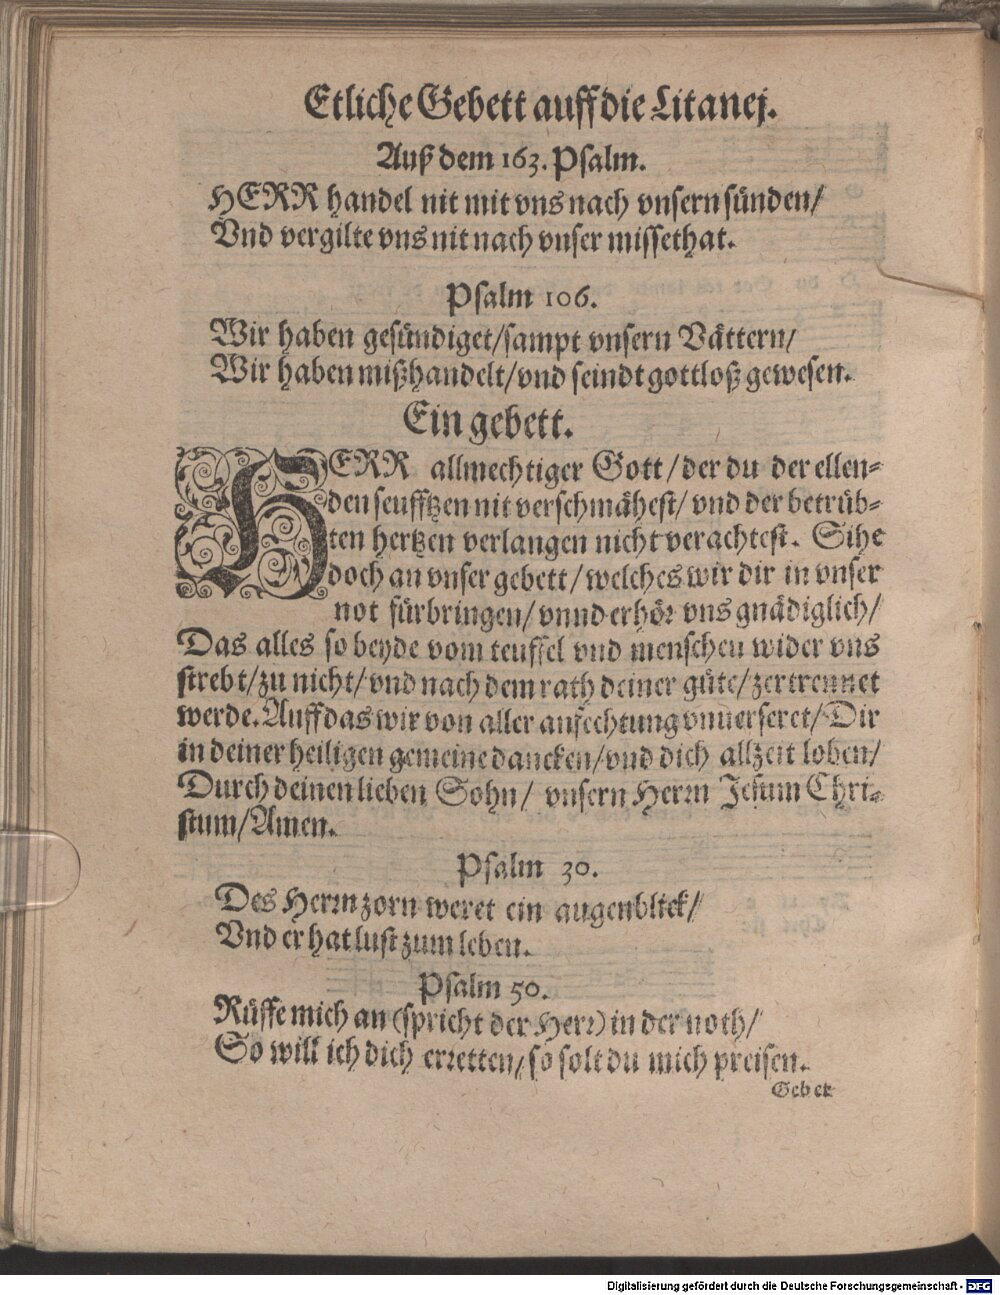 Etliche Gebett auff die Litanej.
Auß dem 163. Psalm.
HERR handel nit mit vns nach vnsern sünden/
Vnd vergilte vns nit nach vnser missethat.
Psalm 106.
Wir haben gesündiget/sampt vnsern Vättern/
Wir haben mißhandelt/vnd seindt gottloß gewesen.
Ein gebett.
HERR allmechtiger Gott/der du der ellen-
den seufftzen nit verschmähest/vnd der betrüb-
ten hertzen verlangen nicht verachtest. Sihe
doch an vnser gebett/welches wir dir in vnser
not fürbringen/vnnd erhör vns gnädiglich/
Das alles so beyde vom teuffel vnd menschen wider vns
strebt/zu nicht/vnd nach dem rath deiner güte/zertrennet
werde. Auff das wir von aller anfechtung vnuerseret/Dir
in deiner heiligen gemeine dancken/vnd dich allzeit loben/
Durch deinen lieben Sohn/ vnsern Herrn Jesum Chri-
stum/Amen.
Psalm 30.
Des Herrn zorn weret ein augenblick/
Vnd er hat lust zum leben.
Psalm 50.
Rüffe mich an (spricht der Herr) in der noth/
So will ich dich erretten/so solt du mich preisen.
Gebet
Digitalisierung gefördert durch die Deutsche Forschungsgemeinschaft - DFG